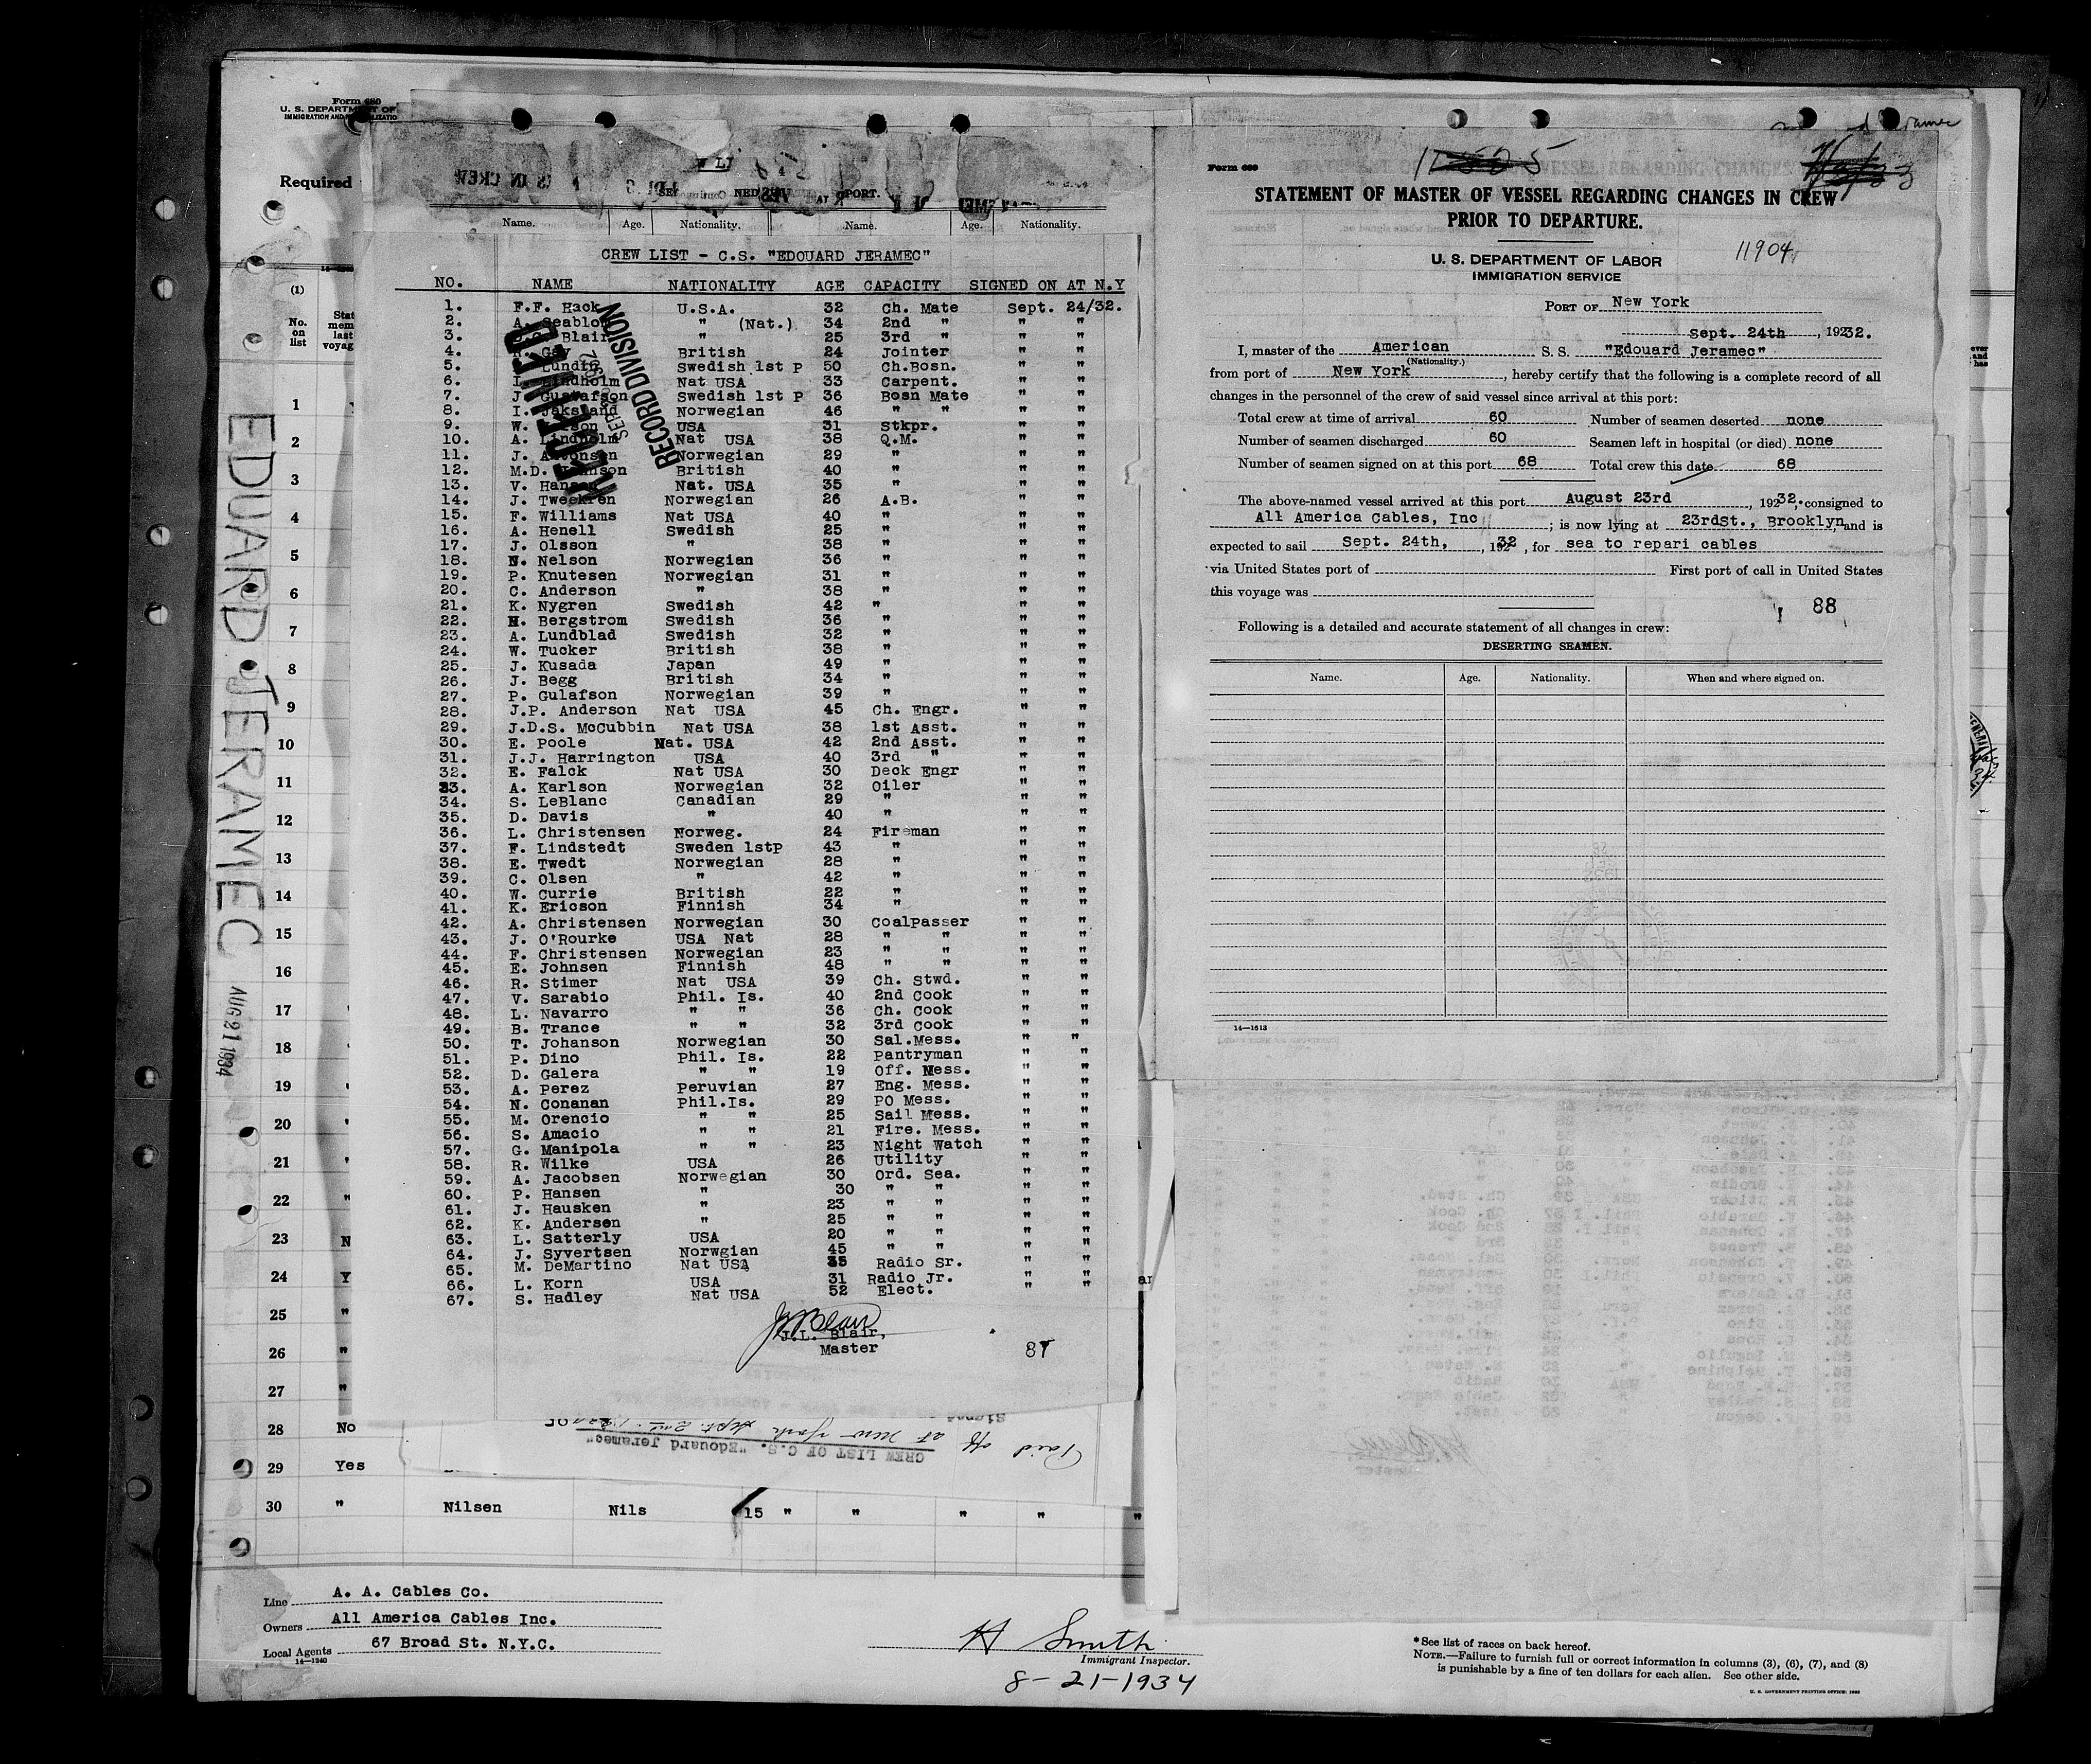 Form 680
U. S. DEPARTMENT OF
Required
(1)
No.
on
list
last
EDUARD JERAMEC
AUG 21 1934
1
2
3
4
5
6
7
8
9
10
11
12
13
14
15
16
17
18
19
20
21
22
23 N
24 Y
25 "
26 "
27 "
28 No
29 Yes
30 " Nilsen Nils 15 " " " " "
PORT.
Name. Age. Nationality. Name. Age. Nationality.
CREW LIST - C.S. "EDOUARD JERAMEC"
NO. NAME NATIONALITY AGE CAPACITY SIGNED ON AT N.Y
1. F.F. Hack U.S.A. 32 Ch. Mate Sept. 24/32.
2. A. " (Nat.) 34 2nd " " "
3. Blair " 25 3rd " " "
4. British 24 Jointer " "
5. Lundin Swedish 1st P 50 Ch.Bosn. " "
6. Lindholm Nat USA 33 Carpent. " "
7. J. Gustafson Swedish 1st P 36 Bosn Mate " "
8. I. Jaksland Norwegian 46 " " " "
9. W. USA 31 Stkpr. " "
10. A. Lindholm Nat USA 38 Q.M. " "
11. J. Norwegian 29 " " "
12. M.D. British 40 " " "
13. V. Hansen Nat. USA 35 " " "
14. J. Tweekren Norwegian 26 A.B. " "
15. F. Williams Nat USA 40 " " "
16. A. Henell Swedish 25 " " "
17. J. Olsson " 38 " " "
18. N. Nelson Norwegian 36 " " "
19. P. Knutesen Norwegian 31 " " "
20. C. Anderson " 38 " " "
21. K. Nygren Swedish 42 " " "
22. H. Bergstrom Swedish 36 " " "
23. A. Lundblad Swedish 32 " " "
24. W. Tucker British 38 " " "
25. J. Kusada Japan 49 " " "
26. J. Begg British 34 " " "
27. P. Gulafson Norwegian 39 " " "
28. J.P. Anderson Nat USA 45 Ch. Engr. " "
29. J.D.S. McCubbin Nat USA 38 1st Asst. " "
30. E. Poole Nat. USA 42 2nd Asst. " "
31. J.J. Harrington USA 40 3rd " " "
32. E. Falck Nat USA 30 Deck Engr " "
33. A. Karlson Norwegian 32 Oiler " "
34. S. LeBlanc Canadian 29 " " "
35. D. Davis " 40 " " "
36. L. Christensen Norweg. 24 Fireman " "
37. F. Lindstedt Sweden 1stP 43 " " "
38. E. Twedt Norwegian 28 " " "
39. C. Olsen " 42 " " "
40. W. Currie British 22 " " "
41. K. Ericson Finnish 34 " " "
42. A. Christensen Norwegian 30 Coalpasser " "
43. J. O'Rourke USA Nat 28 " " " "
44. F. Christensen Norwegian 23 " " " "
45. E. Johnsen Finnish 48 " " " "
46. R. Stimer Nat USA 39 Ch. Stwd. " "
47. V. Sarabio Phil. Is. 40 2nd Cook " "
48. L. Navarro " " 36 Ch. Cook " "
49. B. Trance " " 32 3rd Cook " "
50. T. Johanson Norwegian 30 Sal.Mess. " "
51. P. Dino Phil. Is. 22 Pantryman " "
52. D. Galera " " 19 Off. Mess. " "
53. A. Perez Peruvian 27 Eng. Mess. " "
54. N. Conanan Phil.Is. 29 PO Mess. " "
55. M. Orencio " " 25 Sail Mess. " "
56. S. Amacio " " 21 Fire. Mess. " "
57. G. Manipola " " 23 Night Watch " "
58. R. Wilke USA 26 Utility " "
59. A. Jacobsen Norwegian 30 Ord. Sea. " "
60. P. Hansen " 30 " " " "
61. J. Hausken " 23 " " " "
62. K. Andersen " 25 " " " "
63. L. Satterly USA 20 " " " "
64. J. Syvertsen Norwgian 45 " " " "
65. M. DeMartino Nat USA 35 Radio Sr. " "
66. L. Korn USA 31 Radio Jr. " "
67. S. Hadley Nat USA 52 Elect. " "
RECORD DIVISION
J.L. Blair,
Master
87
Paid off at New York Sept. 2nd
CREW LIST OF C.S. "Edouard Jeramec"
Line A. A. Cables Co.
Owners All America Cables Inc.
Local Agents 67 Broad St. N.Y.C.
14—1240
H Smith
Immigrant Inspector.
8-21-1934
*See list of races on back hereof.
NOTE.—Failure to furnish full or correct information in columns (3), (6), (7), and (8)
is punishable by a fine of ten dollars for each alien. See other side.
U. S. GOVERNMENT PRINTING OFFICE: 1932
Form 689
STATEMENT OF MASTER OF VESSEL REGARDING CHANGES IN CREW
PRIOR TO DEPARTURE.
11904
U. S. DEPARTMENT OF LABOR
IMMIGRATION SERVICE
PORT OF New York
Sept. 24th, 19232.
I, master of the American S. S. "Edouard Jeramec"
(Nationality.)
from port of New York, hereby certify that the following is a complete record of all
changes in the personnel of the crew of said vessel since arrival at this port:
Total crew at time of arrival 60 Number of seamen deserted none
Number of seamen discharged 60 Seamen left in hospital (or died) none
Number of seamen signed on at this port 68 Total crew this date 68
The above-named vessel arrived at this port August 23rd, 19232, consigned to
All America Cables, Inc; is now lying at 23rdSt., Brooklyn, and is
expected to sail Sept. 24th, 19232, for sea to repari cables
via United States port of First port of call in United States
this voyage was
88
Following is a detailed and accurate statement of all changes in crew:
DESERTING SEAMEN.
Name. Age. Nationality. When and where signed on.
14—1613